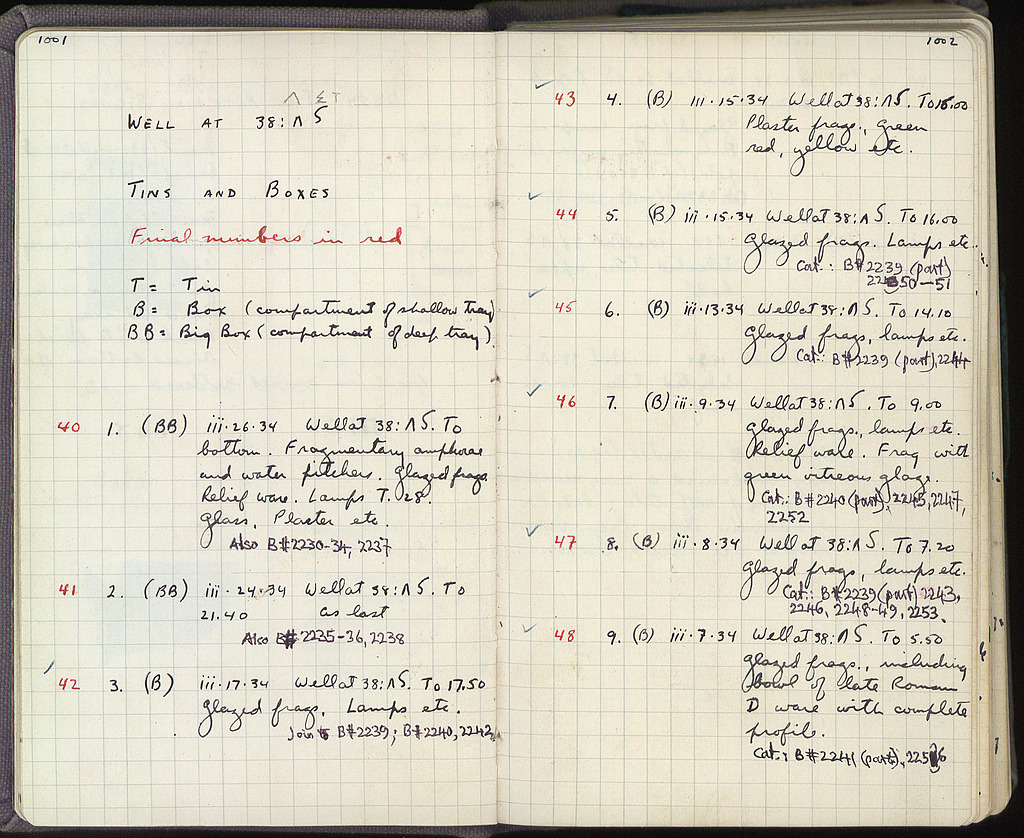 1001
Λ ΣΤ
WELL AT 38:ΛS
TINS AND BOXES
Final numbers in red
T = Tin
B = Box (compartment of shallow tray)
BB = Big Box (compartment of deep tray)
40 1. (BB) iii·26·34 Well at 38:ΛS. To
bottom. Fragmentary amphorae
and water pitchers. Glazed frags.
Relief ware. Lamps T. 28.
Glass, Plaster etc.
Also B#2230-34, 2237
41 2. (BB) iii·24·34 Well at 38:ΛS. To
21.40 as last
Also B# 2235-36, 2238
42 3. (B) iii·17·34 Well at 38:ΛS. To 17.50
Glazed frags, Lamps etc.
Join B#2239; B#2240, 2242
1002
43 4. (B) iii·15·34 Well at 38:ΛS. To 16.00
Plaster frags., green
red, yellow etc.
44 5. (B) iii·15·34 Well at 38:ΛS. To 16.00
Glazed frags. Lamps etc.
Cat.: B#2239 (part)
2250-51
45 6. (B) iii·13·34 Well at 38:ΛS. To 14.10
Glazed frags, lamps etc.
Cat.: B#2239 (part), 2244
46 7. (B) iii·9·34 Well at 38:ΛS. To 9.00
Glazed frags., lamps etc.
Relief ware. Frag with
green vitreous glaze.
Cat.: B#2240 (part), 2245, 2247,
2252
47 8. (B) iii·8·34 Well at 38:ΛS. To 7.20
Glazed frags, lamps etc.
Cat.: B#2239 (part) 2243,
2246, 2248-49, 2253.
48 9. (B) iii·7·34 Well at 38:ΛS. To 5.50
Glazed frags., including
bowl of late Roman
D ware with complete
profile.
Cat.: B#2241 (part),